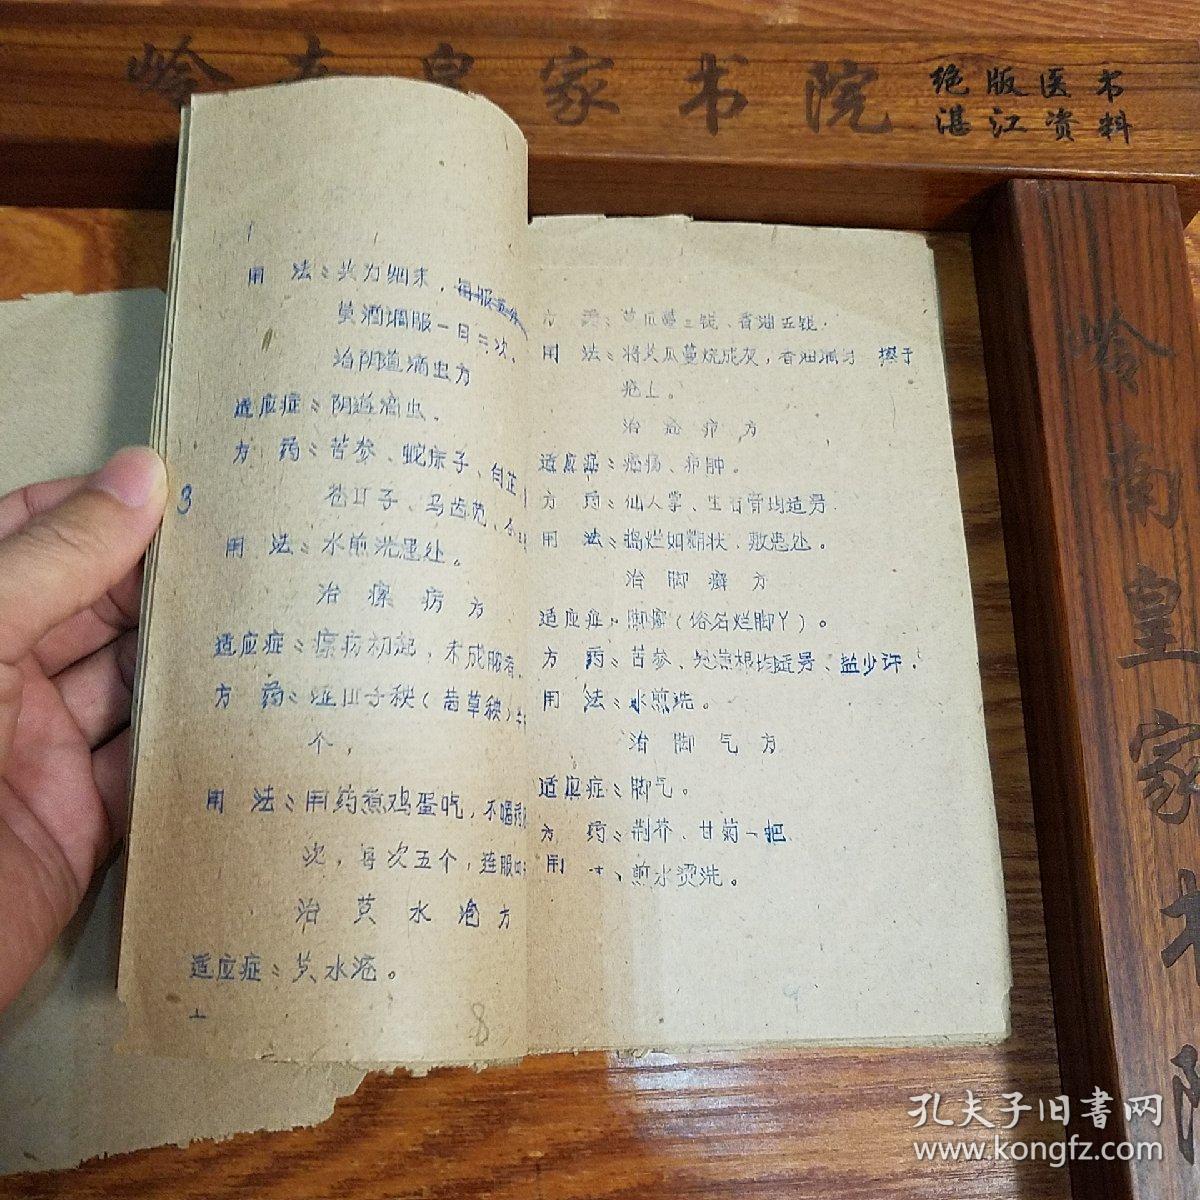 岭南皇家书院
绝版医书
湛江资料
用 法：共为细末，每服五分
黄酒调服一日三次。
治阴道滴虫方
适应症：阴道滴虫。
方 药：苦参、蛇床子、白芷
苍耳子、马齿苋、
用 法：水煎洗患处。
3
治瘰疬方
适应症：瘰疬初起，未成脓者。
方 药：
个，
用 法：用药煮鸡蛋吃，不喝
次，每次五个，连服
治黄水疮方
适应症：黄水疮。
8
方 药：黄瓜蔓三钱、香油五钱.
用 法：将黄瓜蔓烧成灰，香油调匀 擦于
疮上。
治疮疖方
适应症：疮疡、疖肿。
方 药：仙人掌、生石膏均适另.
用 法：捣烂如糊状、敷患处。
治脚癣方
适应症：脚癣（俗名烂脚丫）。
方 药：苦参、根均适另、盐少许.
用 法：水煎洗。
治脚气方
适应症：脚气。
方 药：荆芥、甘菊一把
用 煎水烫洗。
9
岭南皇家书院
孔夫子旧书网
www.kongfz.com